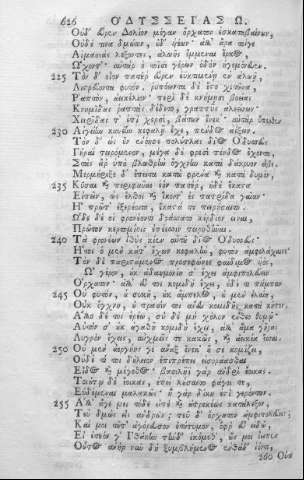 626 ΟΔΥΣΣΕΙΑΣ Ω.
Οὐδ' εὗρεν Δολίον μέγαν ὄρχατον ἐσκαταβαίνων,
Οὐδέ τινα δμώων, οὐδ' υἱῶν· ἀλλ' ἄρα τοίγε
Αἱμασιὰς λέξοντες, ἀλωῆς ἔμμεναι ἕρκος,
ᾬχοντ'· αὐτὰρ ὁ τοῖσι γέρων ὁδὸν ἡγεμόνευεν.
225 Τὸν δ' οἶον πατέρ' εὗρεν ἐϋκτιμένῃ ἐν ἀλωῇ,
Λιστρεύοντα φυτόν, ῥυπόωντα δὲ ἕστο χιτῶνα,
Ῥαπτὸν, ἀεικέλιον· περὶ δὲ κνήμῃσι βοείας
Κνημῖδας ῥαπτὰς δέδετο, γραπτῦς ἀλεείνων·
Χειρῖδάς τ' ἐπὶ χερσὶ, βάτων ἕνεκ'· αὐτὰρ ὕπερθεν
230 Αἰγείην κυνέην κεφαλῇ ἔχε, πένθος ἀέξων.
Τὸν δ' ὡς οὖν ἐνόησε πολύτλας δῖος Ὀδυσσεὺς
Γήραϊ τειρόμενον, μέγα δὲ φρεσὶ πένθος ἔχοντα,
Στὰς ἄρ' ὑπὸ βλωθρὴν ὄγχνην κατὰ δάκρυον εἶβε.
Μερμήριξε δ' ἔπειτα κατὰ φρένα καὶ κατὰ θυμὸν,
235 Κύσσαι καὶ περιφῦναι ἑὸν πατέρ', ἠδὲ ἕκαστα
Εἰπεῖν, ὡς ἔλθοι καὶ ἵκοιτ' ἐς πατρίδα γαῖαν·
Ἢ πρῶτ' ἐξερέοιτο, ἕκαστά τε πειρήσαιτο.
Ὧδε δέ οἱ φρονέοντι δοάσσατο κέρδιον εἶναι,
Πρῶτον κερτομίοις ἐπέεσσιν πειρηθῆναι.
240 Τὰ φρονέων ἰθὺς κίεν αὐτοῦ δῖος Ὀδυσσεύς·
Ἤτοι ὁ μὲν κατέχων κεφαλὴν, φυτὸν ἀμφελάχαινε·
Τὸν δὲ παριστάμενος προσεφώνεε φαίδιμος υἱός·
Ὦ γέρον, οὐκ ἀδαημονίη σ' ἔχει ἀμφιπολεύειν
Ὄρχατον· ἀλλ' εὖ τοι κομιδὴ ἔχει, οὐδέ τι πάμπαν
245 Οὐ φυτὸν, οὐ συκῆ, οὐκ ἄμπελος, οὐ μὲν ἐλαίη,
Οὐκ ὄγχνη, οὐ πρασιή τοι ἄνευ κομιδῆς κατὰ κῆπον.
Ἄλλο δέ τοι ἐρέω, σὺ δὲ μὴ χόλον ἔνθεο θυμῷ·
Αὐτόν σ' οὐκ ἀγαθὴ κομιδὴ ἔχει, ἀλλ' ἅμα γῆρας
Λυγρὸν ἔχεις, αὐχμεῖς τε κακῶς, καὶ ἀεικέα ἕσσαι.
250 Οὐ μὲν ἀεργίης γε ἄναξ ἕνεκ' οὔ σε κομίζει,
Οὐδέ τί τοι δούλειον ἐπιπρέπει εἰσοράασθαι
Εἶδος καὶ μέγεθος· βασιλῆϊ γὰρ ἀνδρὶ ἔοικας.
Τοιούτῳ δὲ ἔοικας, ἐπεὶ λούσαιτο φάγοι τε,
Εὑδέμεναι μαλακῶς· ἡ γὰρ δίκη ἐστὶ γερόντων.
255 Ἀλλ' ἄγε μοι τόδε εἰπὲ καὶ ἀτρεκέως κατάλεξον,
Τεῦ δμὼς εἶς ἀνδρῶν; τεῦ δ' ὄρχατον ἀμφιπολεύεις;
Καί μοι τοῦτ' ἀγόρευσον ἐτήτυμον, ὄφρ' εὖ εἰδῶ,
Εἰ ἐτεόν γ' Ἰθάκην τήνδ' ἱκόμεθ', ὥς μοι ἔειπεν
Οὗτος ἀνὴρ νῦν δὴ ξυμβλήμενος ἐνθάδ' ἰόντι,
260 Οὔτι